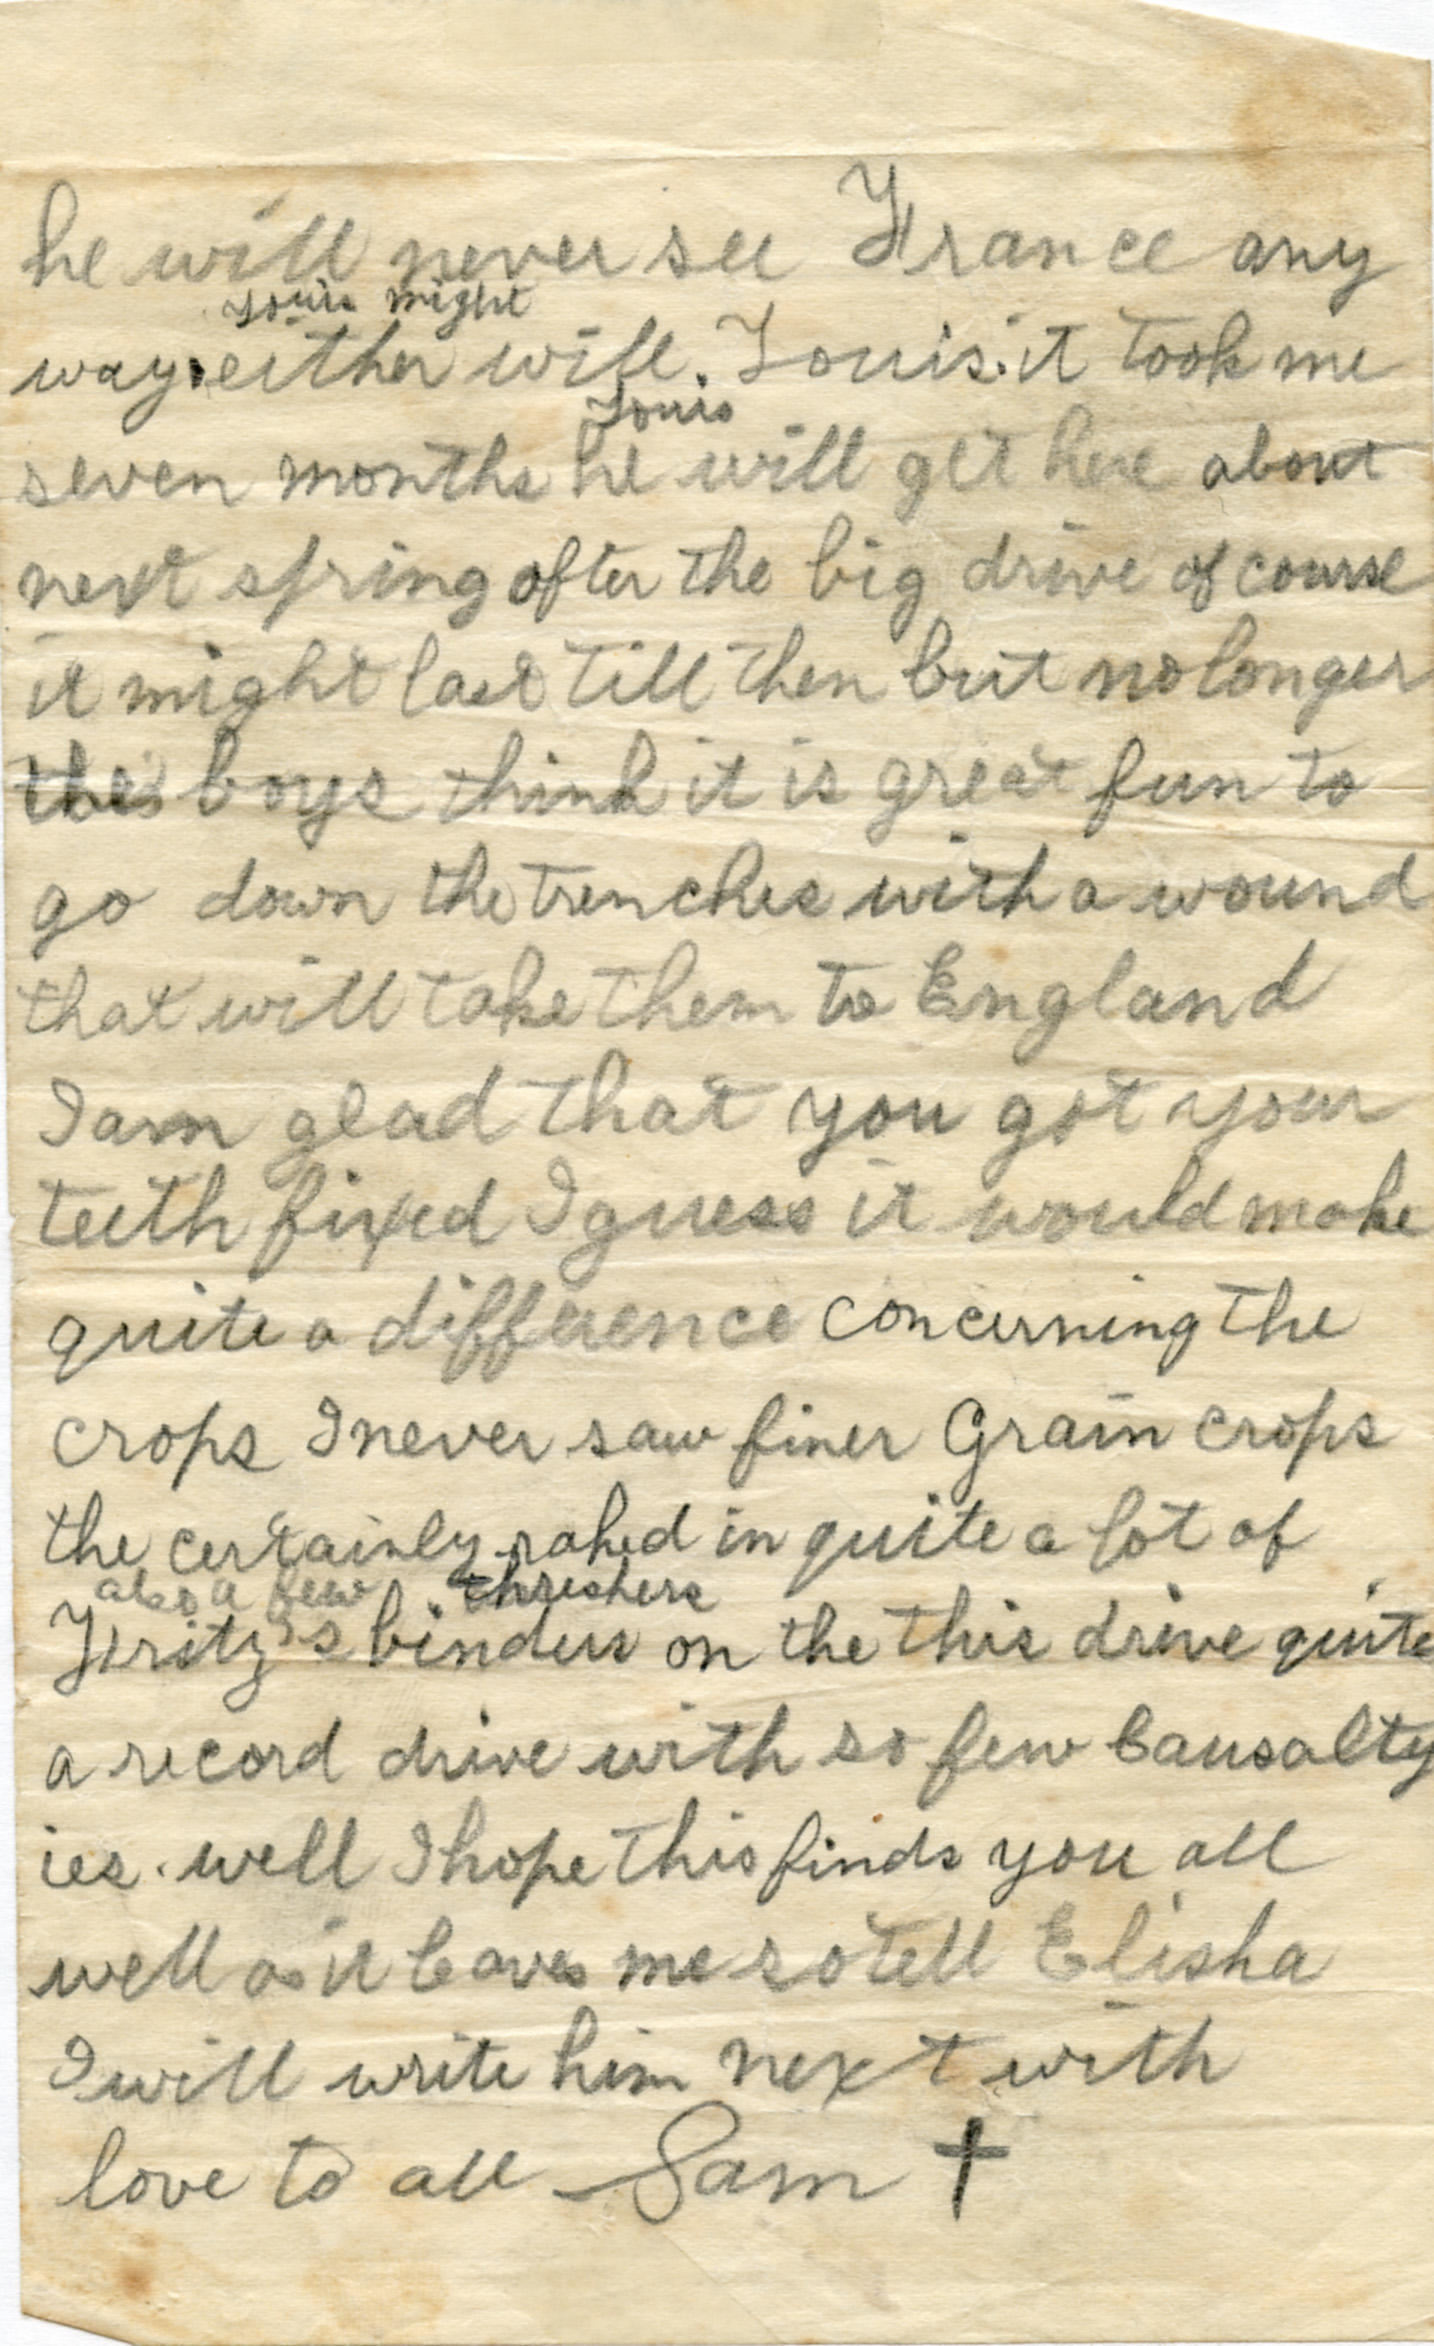 he will never see France any
Louis might
way. either will. Louis. it took me
Louis
seven months he will get here about
next spring after the big drive of course
it might last till then but no longer
the boys think it is great fun to
go down the trenches with a wound
that will take them to England
I am glad that you got your
teeth fixed I guess it would make
quite a difference concerning the
crops I never saw finer Grain crops
the certainly raked in quite a lot of
also a few threshers
Fritz's binders on the this drive quite
a record drive with so few Causalty
ies. well I hope this finds you all
well as it leaves me so tell Elisha
I will write him next with
love to all Sam †